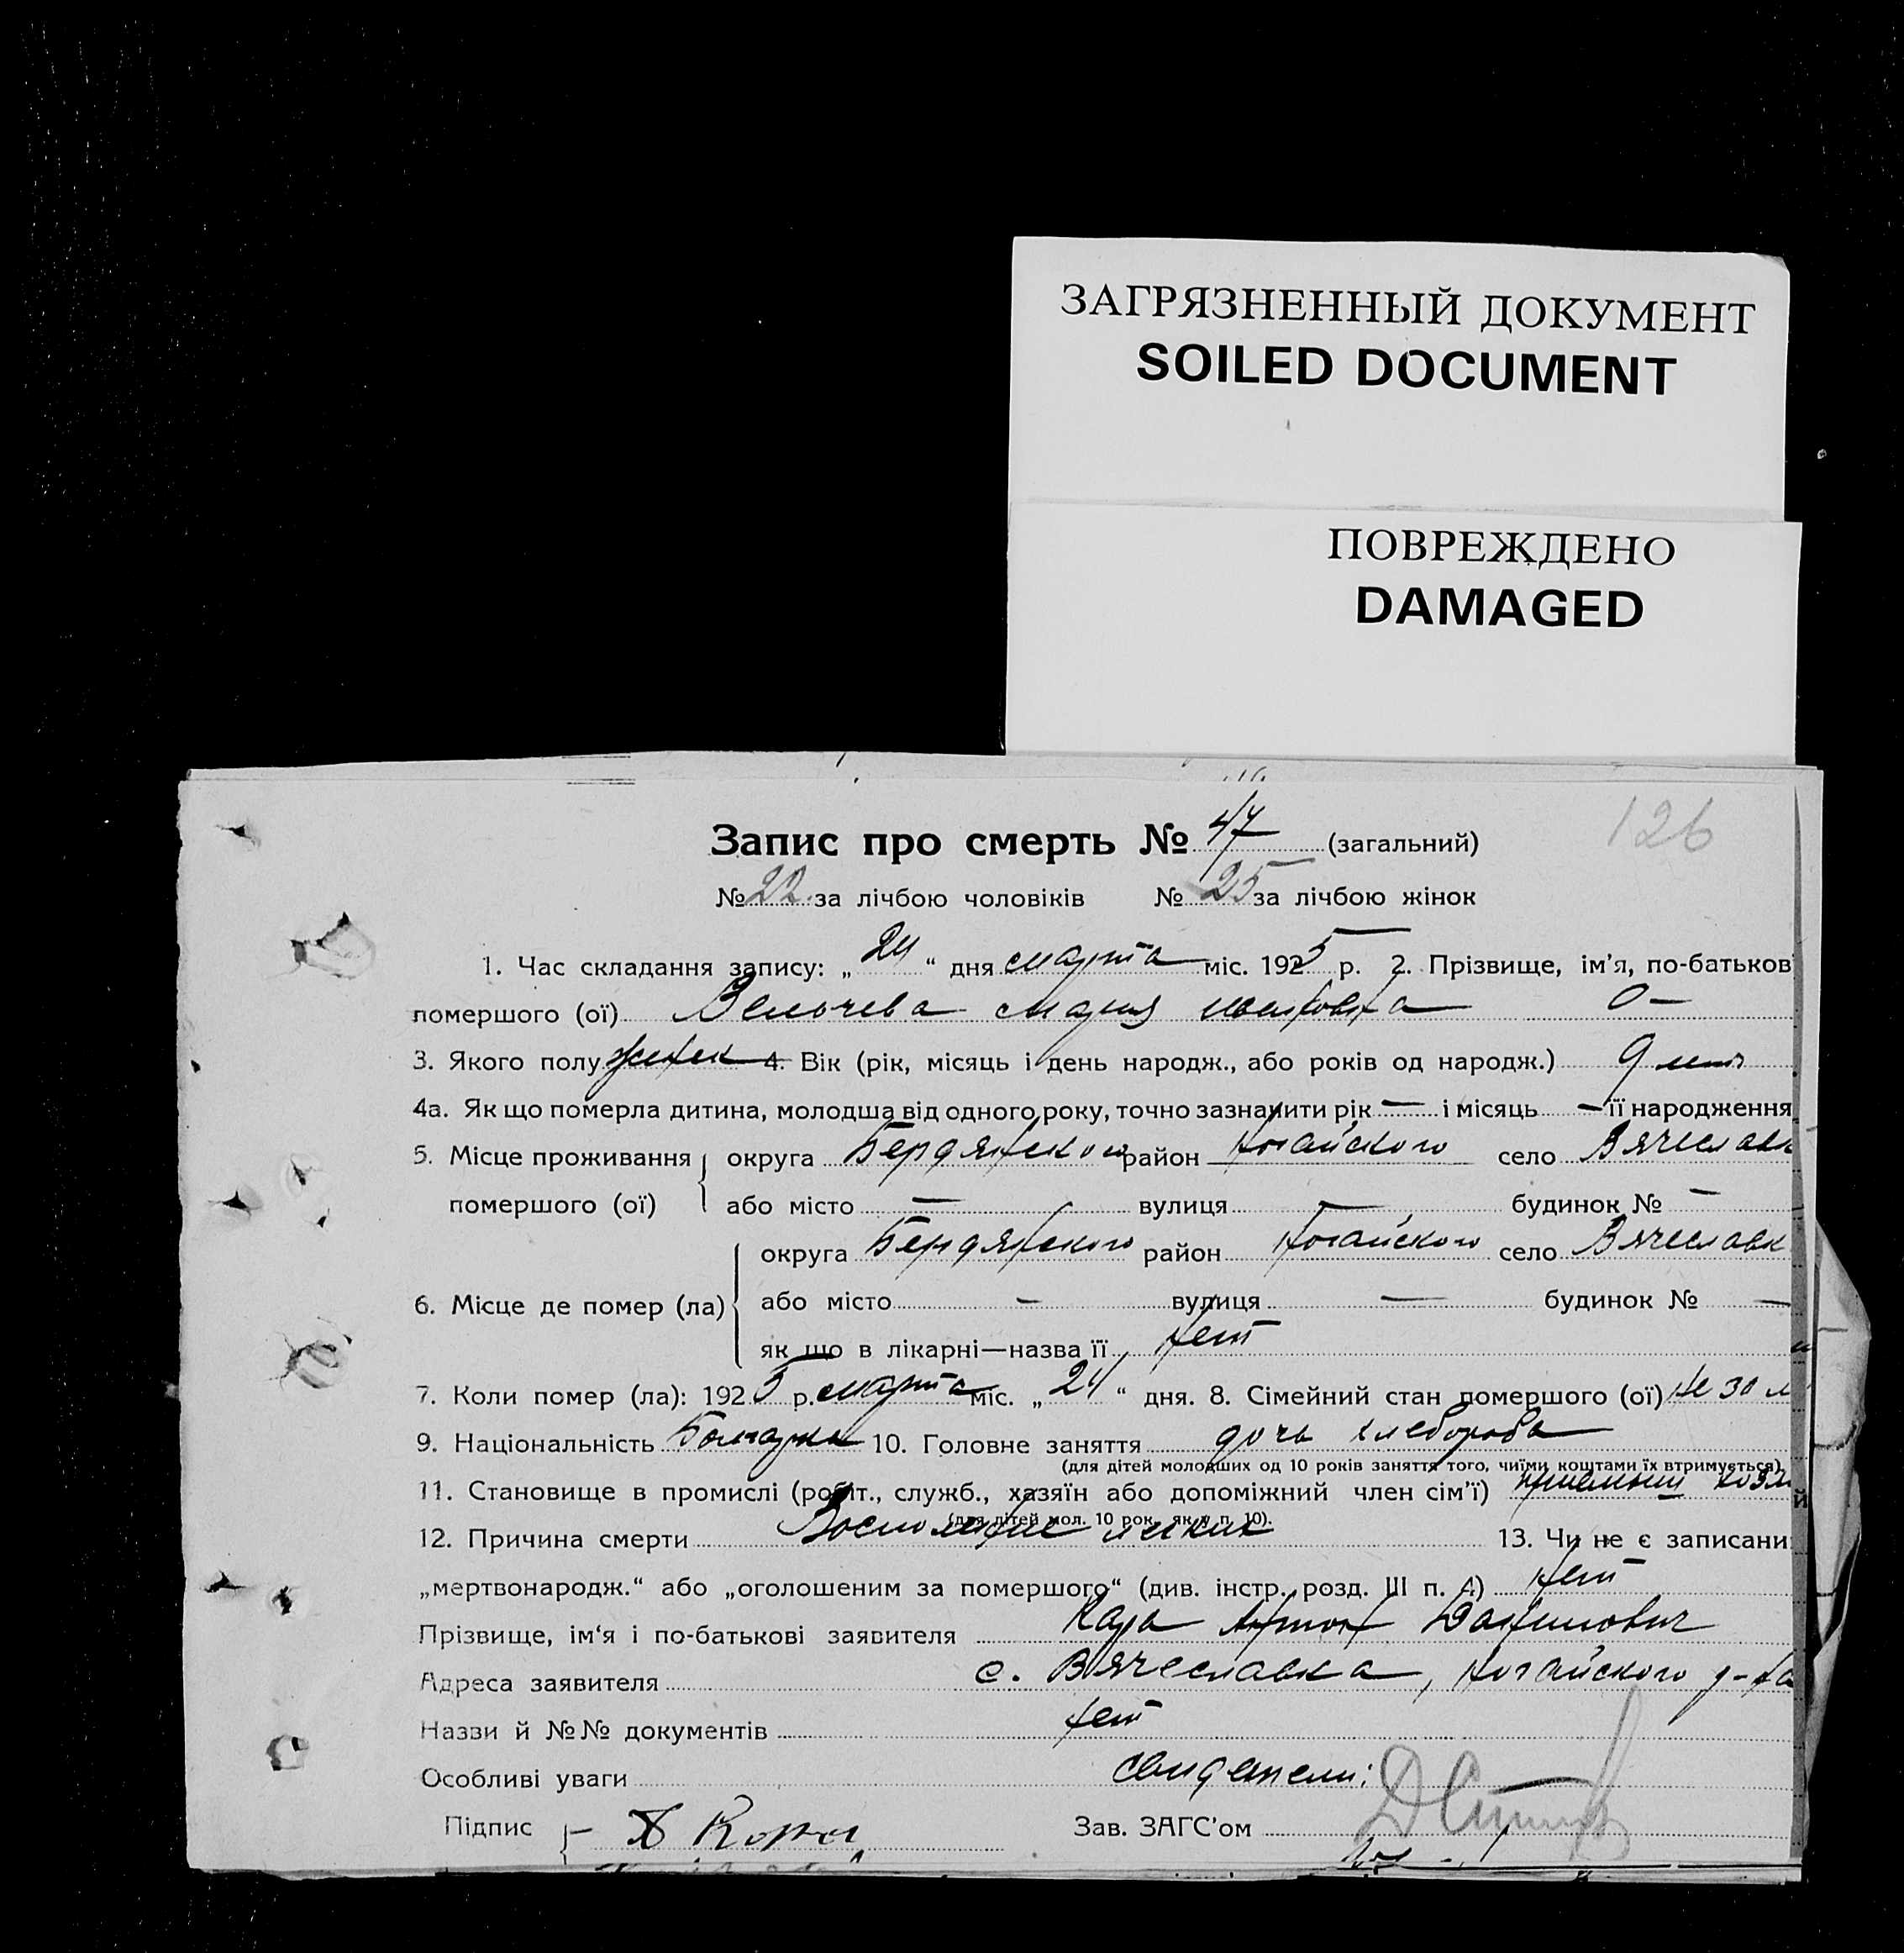 ЗАГРЯЗНЕННЫЙ ДОКУМЕНТ
SOILED DOCUMENT
ПОВРЕЖДЕНО
DAMAGED
126
Запис про смерть № 47 (загальний)
№ 22 за лічбою чоловіків № 25 за лічбою жінок
1. Час складання запису: „ 24 “ дня марта міс. 1925 р. 2. Прізвище, ім’я, по-батьков
помершого (ої) Вельчева Мария Ивановна
3. Якого полу женск 4. Вік (рік, місяць і день народж., або років од народж.) 9 лет
4а. Як що померла дитина, молодша від одного року, точно зазначити рік — і місяць — її народження
5. Місце проживання округа Бердянского район Ногайского село Вячеславк
помершого (ої) або місто — вулиця — будинок № —
округа Бердянского район Ногайского село Вячеславк
6. Місце де помер (ла) або місто — вулиця — будинок № —
як що в лікарні—назва її нет
7. Коли помер (ла): 1925 р. марта міс. „ 24 “ дня. 8. Сімейний стан помершого (ої)
9. Національність Болгарка 10. Головне заняття дочь хлебороба
(для дітей молодших од 10 років заняття того, чиїми коштами їх втримується)
11. Становище в промислі (робіт., служб., хазяїн або допоміжний член сім’ї)
(для дітей мол. 10 рок., як в п. 10).
12. Причина смерти Восполение легких 13. Чи не є записани
„мертвонародж.“ або „оголошеним за помершого“ (див. інстр., розд. III п. 4) нет
Прізвище, ім‘я і по-батькові заявителя Кара Антон Данилович
Адреса заявителя с. Вячеславка, Ногайского р-на
Назви й №№ документів нет
Особливі уваги свидетели:
Підпис Зав. ЗАГС’ом